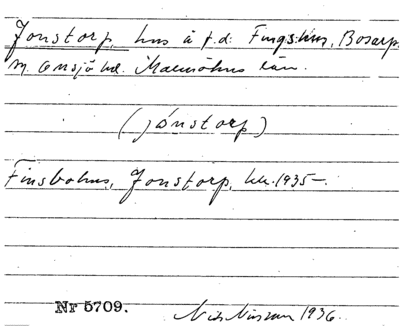 Jonstorp, hus å f.d. Fingshus, Bosarp
sn. Onsjö hd. Malmöhus län.
(jónstorp)
Finsbohus, Jonstorp, kk. 1935–.
Nr 5709.
Nils Nilsson 1936.